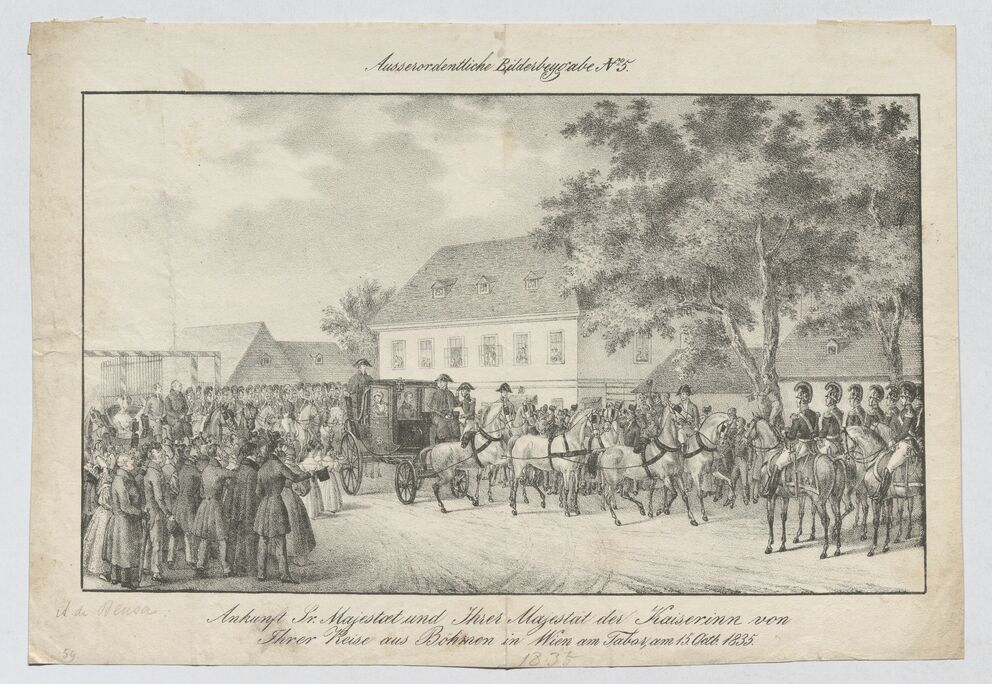 Ausserordentliche Bilderbeygabe No 5.
A de Bensa
Ankunft Sr. Majestæt und Ihrer Majestät der Kaiserinn von
Ihrer Reise aus Böhmen in Wien am Tabor, am 15. Octb. 1835.
59
1835